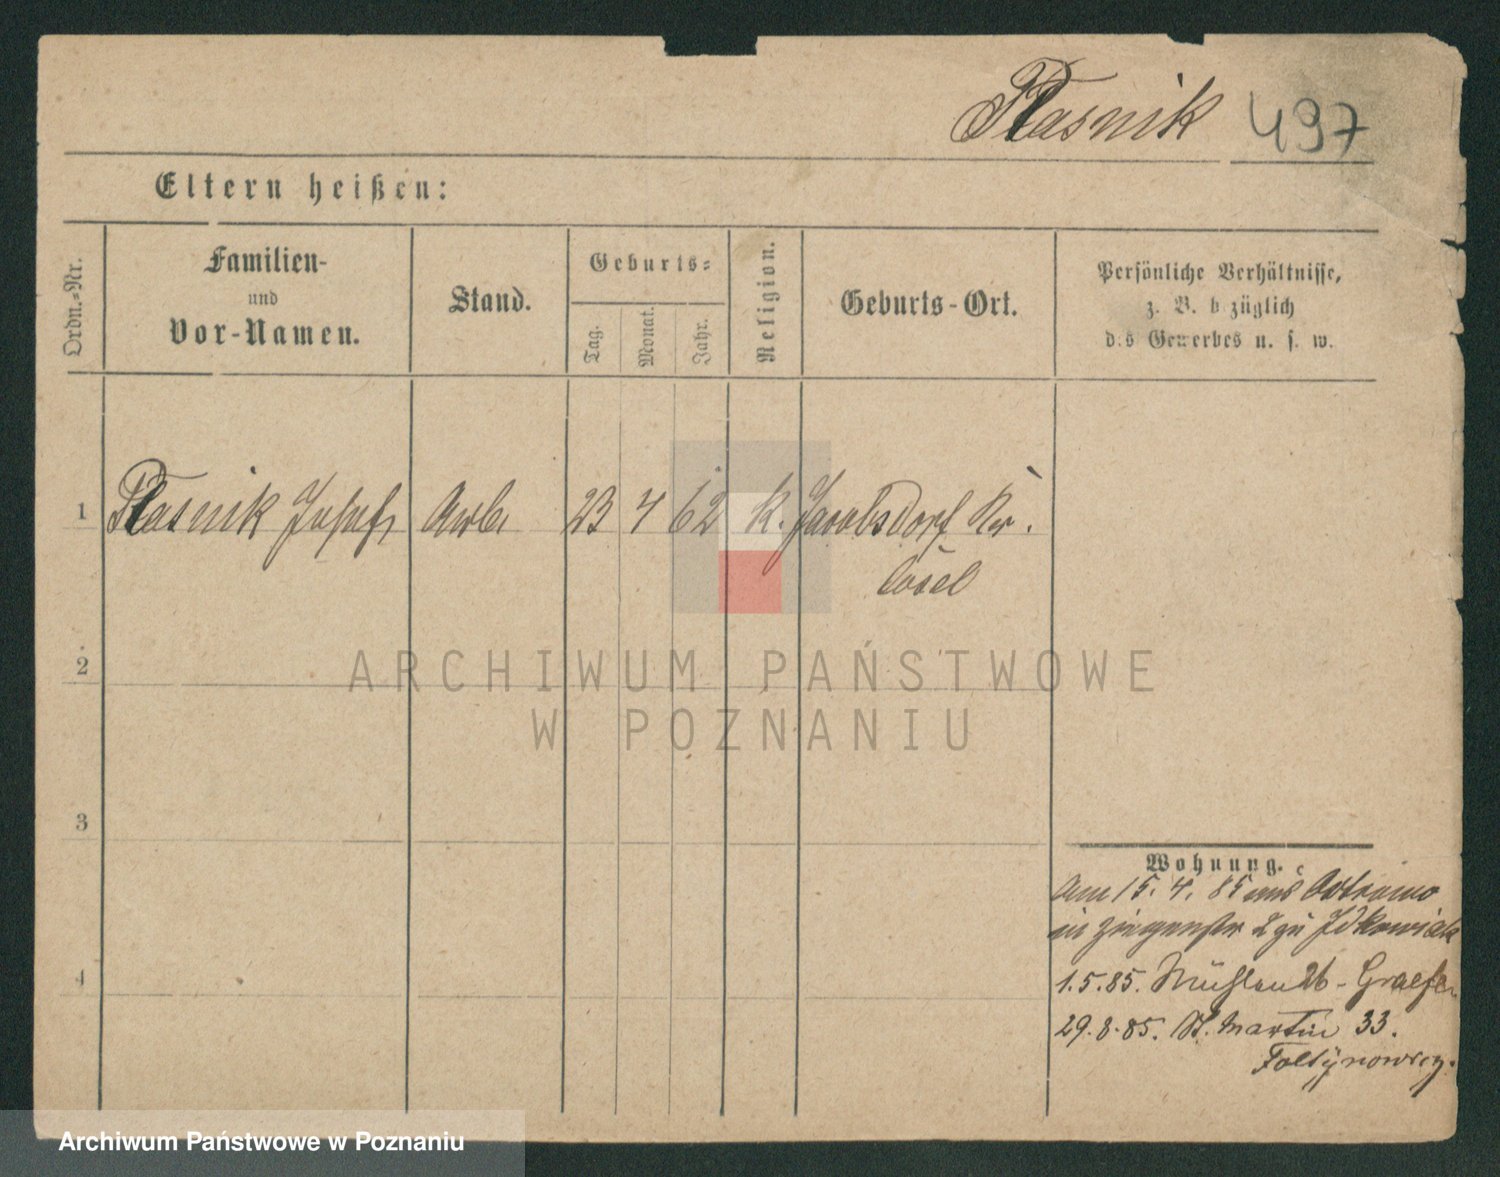 Plasnik 497
Eltern heißen:
Ordn.-Nr.
Familien-
und
Vor-Namen.
Stand.
Geburts-
Tag.
Monat.
Jahr.
Religion.
Geburts-Ort.
Persönliche Verhältnisse,
z. B. bezüglich
des Gewerbes u. s. w.
1 Plasnik Josef Arb. 23 4 62 K. Jacobsdorf Kr.
Cosel
2
3
4
Wohnung.
Am 15. 4. 85 aus Ostrowo
in Ziegenstr 2 zu
1.5.85. Mühlen 26 -
29.8.85. St. Martin 33.
ARCHIWUM PAŃSTWOWE
W POZNANIU
Archiwum Państwowe w Poznaniu